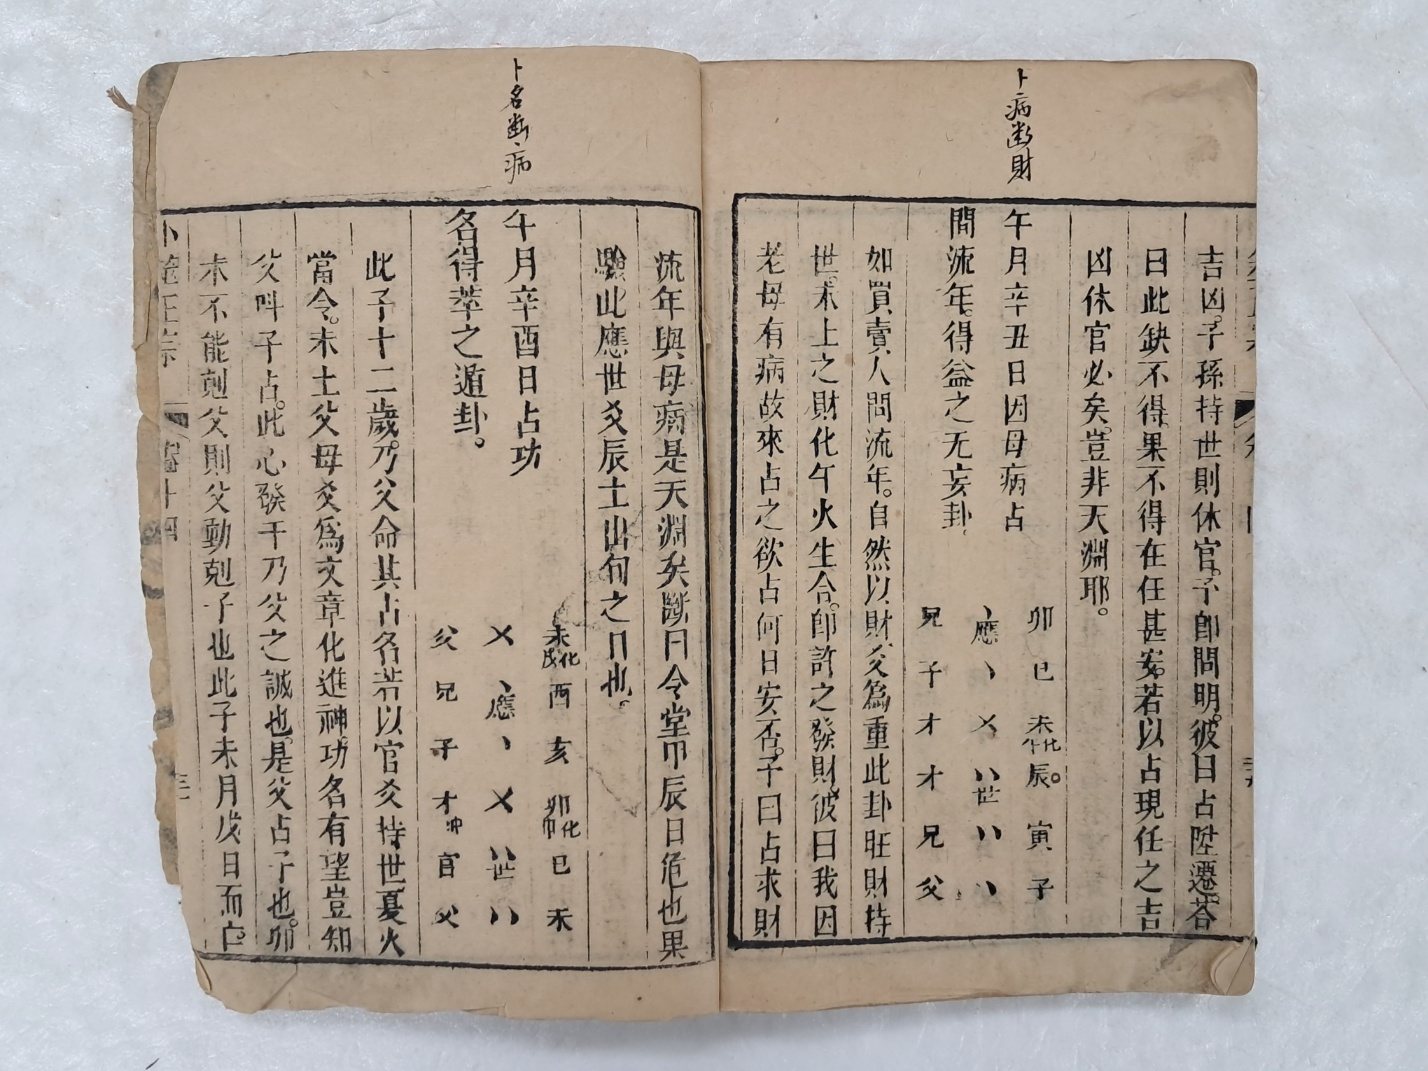 卜病斷財
吉凶。子孫持世則休官。予卽問明。彼曰占陞遷。荅
曰此缺不得。果不得在任甚安。若以占現任之吉
凶休官必矣。豈非天淵耶。
午月辛丑日因母病占
間流年。得益之无妄卦
卯巳未化午辰。寅子
、應、乂〃世〃、
兄子才才兄父
如買賣人問流年。自然以財爻爲重此卦旺財持
世。未上之財化午火生合。卽許之發財。彼曰我因
老母有病故來占之欲占何日安否。予曰占求財
卜名斷病
流年與母病是天淵矣斷曰令堂甲辰日危也果
驗此應世爻辰土出旬之日也。
午月辛酉日占功
名得萃之遁卦。
未化戌酉亥卯化申巳未
乂、應、乂〃世〃
父兄子才官父
此子十二歲。乃父命其占名若以官爻持世夏火
當令。未土父母爻爲文章化進神。功名有望豈知
父呌子占。此心發于乃父之誠也。是父占子也。卯
木不能剋父則父動剋子也此子未月戊日而亡。
卜筮正宗
卷十四